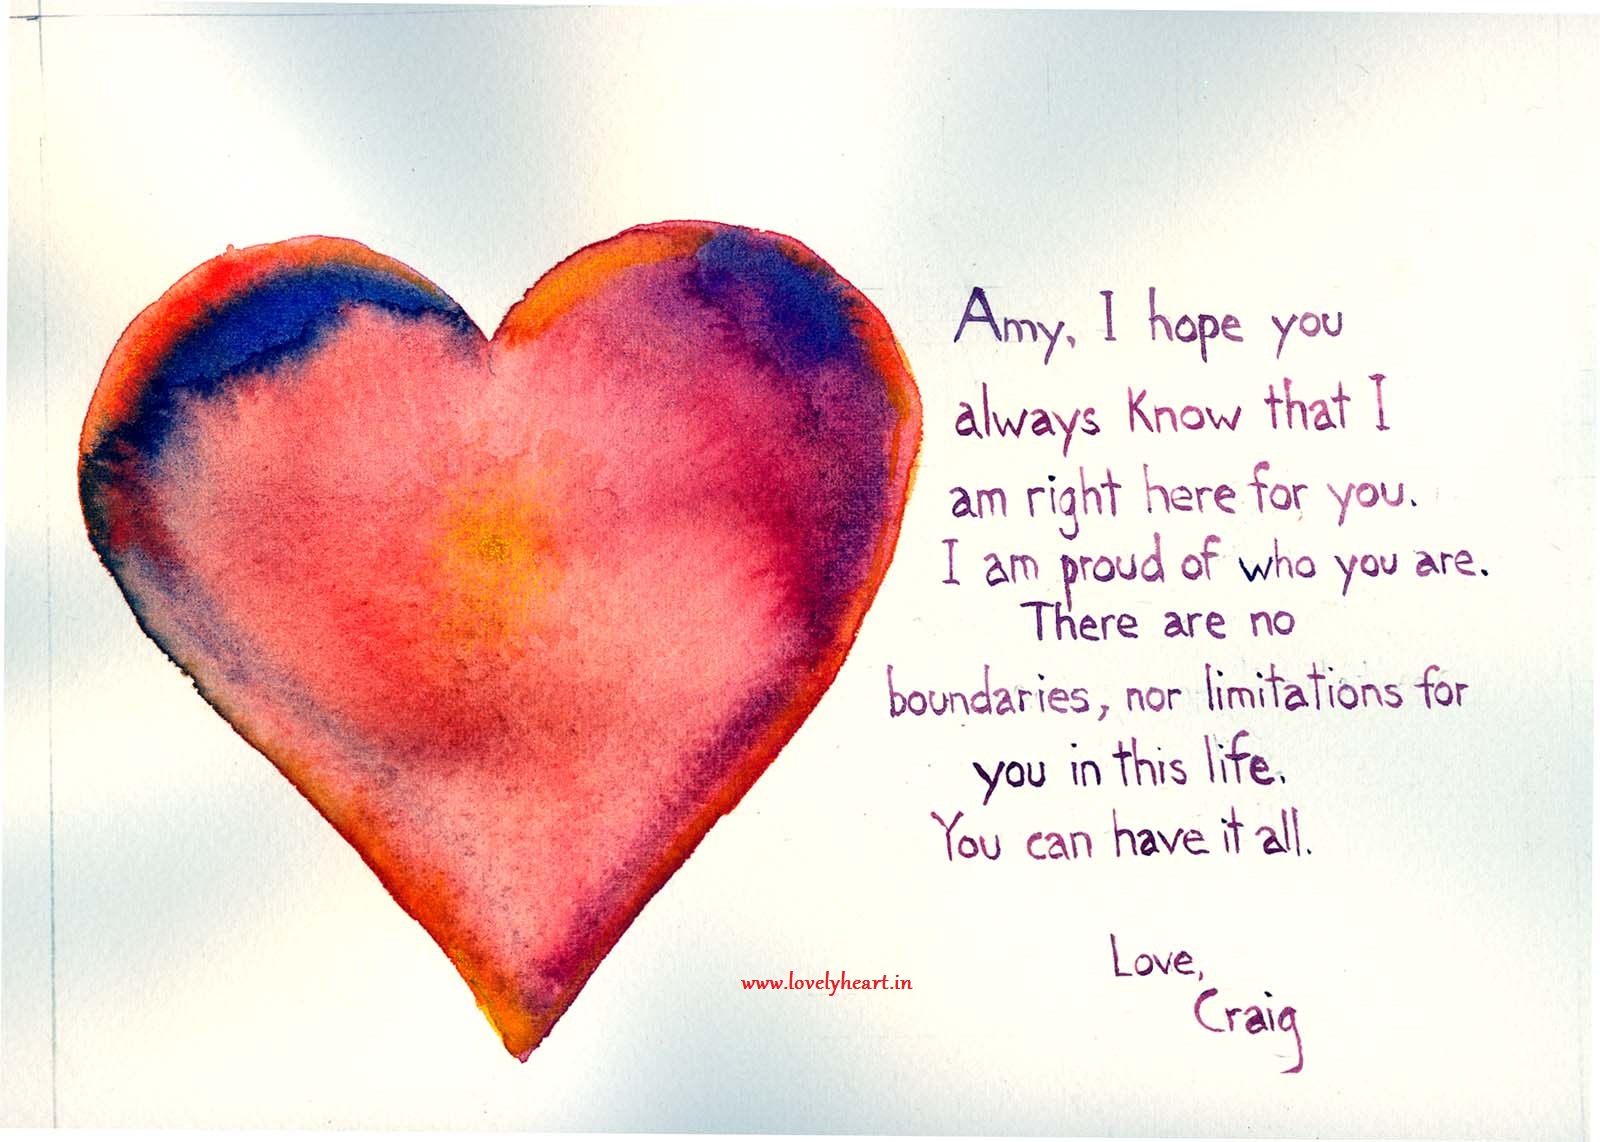 Amy, I hope you
always Know that I
am right here for you.
I am proud of who you are.
There are no
boundaries, nor limitations for
you in this life.
You can have it all.
Love,
Craig
www.lovelyheart.in